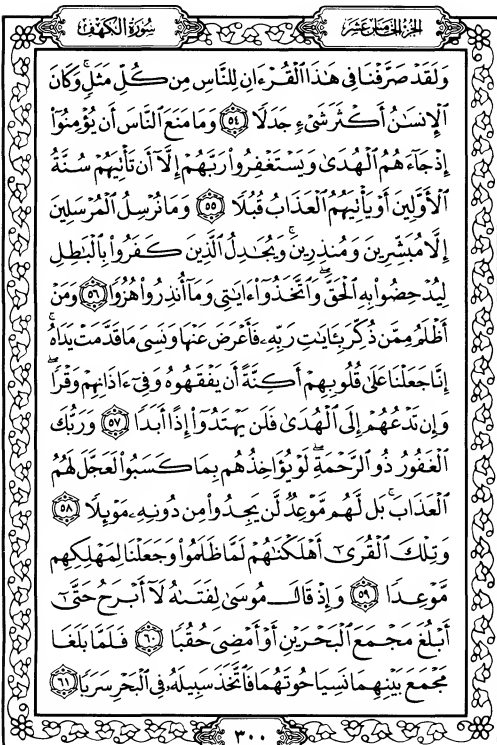 الجزء الخامس عشر
سورة الكهف
وَلَقَدْ صَرَّفْنَا فِي هَٰذَا ٱلْقُرْءَانِ لِلنَّاسِ مِن كُلِّ مَثَلٍۚ وَكَانَ
ٱلْإِنسَٰنُ أَكْثَرَ شَيْءٍ جَدَلًا ٥٤ وَمَا مَنَعَ ٱلنَّاسَ أَن يُؤْمِنُوٓا۟
إِذْ جَآءَهُمُ ٱلْهُدَىٰ وَيَسْتَغْفِرُوا۟ رَبَّهُمْ إِلَّآ أَن تَأْتِيَهُمْ سُنَّةُ
ٱلْأَوَّلِينَ أَوْ يَأْتِيَهُمُ ٱلْعَذَابُ قُبُلًا ٥٥ وَمَا نُرْسِلُ ٱلْمُرْسَلِينَ
إِلَّا مُبَشِّرِينَ وَمُنذِرِينَۚ وَيُجَٰدِلُ ٱلَّذِينَ كَفَرُوا۟ بِٱلْبَٰطِلِ
لِيُدْحِضُوا۟ بِهِ ٱلْحَقَّۖ وَٱتَّخَذُوٓا۟ ءَايَٰتِي وَمَآ أُنذِرُوا۟ هُزُوًا ٥٦ وَمَنْ
أَظْلَمُ مِمَّن ذُكِّرَ بِـَٔايَٰتِ رَبِّهِۦ فَأَعْرَضَ عَنْهَا وَنَسِيَ مَا قَدَّمَتْ يَدَاهُۚ
إِنَّا جَعَلْنَا عَلَىٰ قُلُوبِهِمْ أَكِنَّةً أَن يَفْقَهُوهُ وَفِيٓ ءَاذَانِهِمْ وَقْرًاۖ
وَإِن تَدْعُهُمْ إِلَى ٱلْهُدَىٰ فَلَن يَهْتَدُوٓا۟ إِذًا أَبَدًا ٥٧ وَرَبُّكَ
ٱلْغَفُورُ ذُو ٱلرَّحْمَةِۖ لَوْ يُؤَاخِذُهُم بِمَا كَسَبُوا۟ لَعَجَّلَ لَهُمُ
ٱلْعَذَابَۚ بَل لَّهُم مَّوْعِدٌ لَّن يَجِدُوا۟ مِن دُونِهِۦ مَوْئِلًا ٥٨
وَتِلْكَ ٱلْقُرَىٰٓ أَهْلَكْنَٰهُمْ لَمَّا ظَلَمُوا۟ وَجَعَلْنَا لِمَهْلِكِهِم
مَّوْعِدًا ٥٩ وَإِذْ قَالَ مُوسَىٰ لِفَتَىٰهُ لَآ أَبْرَحُ حَتَّىٰٓ
أَبْلُغَ مَجْمَعَ ٱلْبَحْرَيْنِ أَوْ أَمْضِيَ حُقُبًا ٦٠ فَلَمَّا بَلَغَا
مَجْمَعَ بَيْنِهِمَا نَسِيَا حُوتَهُمَا فَٱتَّخَذَ سَبِيلَهُۥ فِي ٱلْبَحْرِ سَرَبًا ٦١
٣٠٠